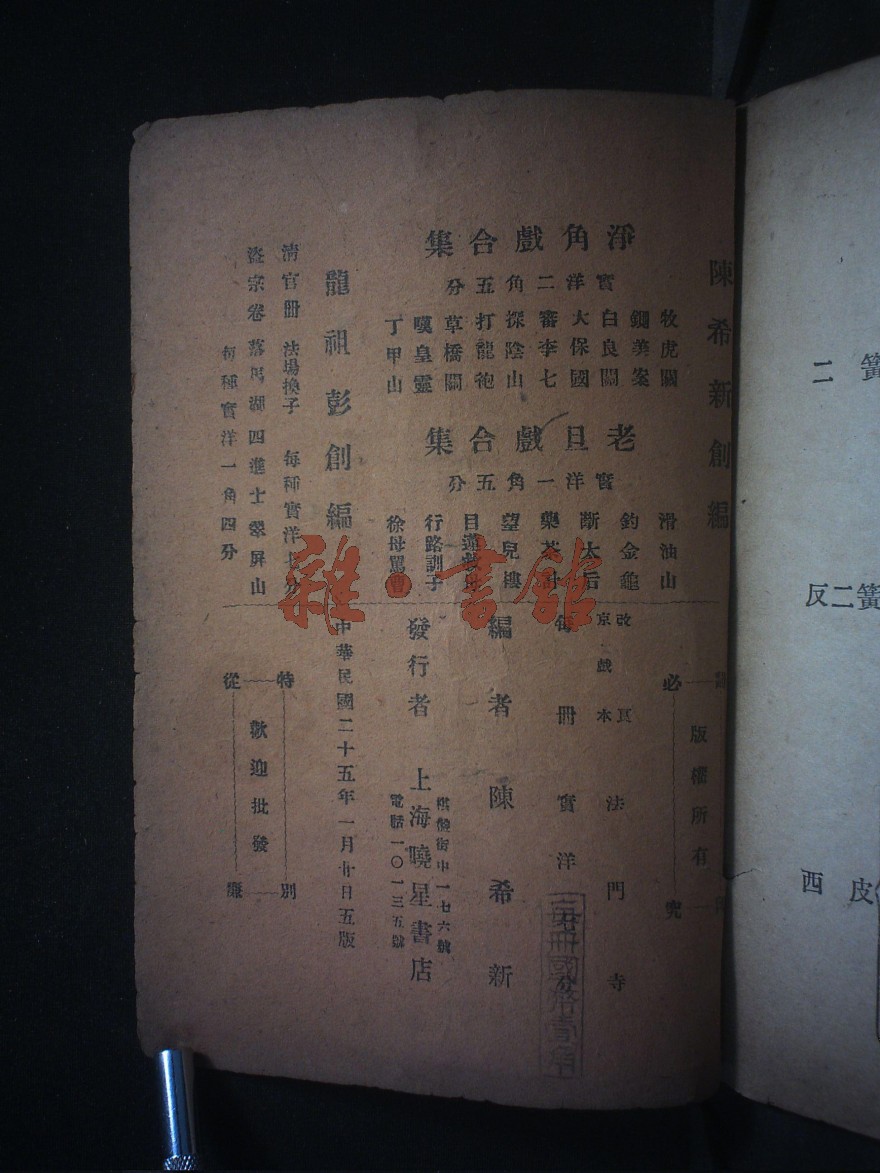 陳希新創編
淨角戲合集
實洋二角五分
牧虎關
鍘美案
白良關
大保國
審李七
探陰山
打龍袍
草橋關
嘆皇靈
丁甲山
老旦戲合集
實洋一角五分
滑油山
釣金龜
斷太后
藥茶計
望兒樓
目蓮救母
行路訓子
徐母罵曹
龍祖彭創編
清官冊 法場換子 每種實洋七分
盜宗卷 落馬湖 四進士 翠屏山
每種實洋一角四分
版權所有
必
究
改良
京戲本
法門寺
每冊實洋
每冊國幣壹角
編者 陳希新
發行者 上海曉星書店
棋盤街中一七六號
電話一〇一三五號
中華民國二十五年一月廿日五版
特別
歡迎批發
從廉
雜·書館
二簧
反二簧
西皮